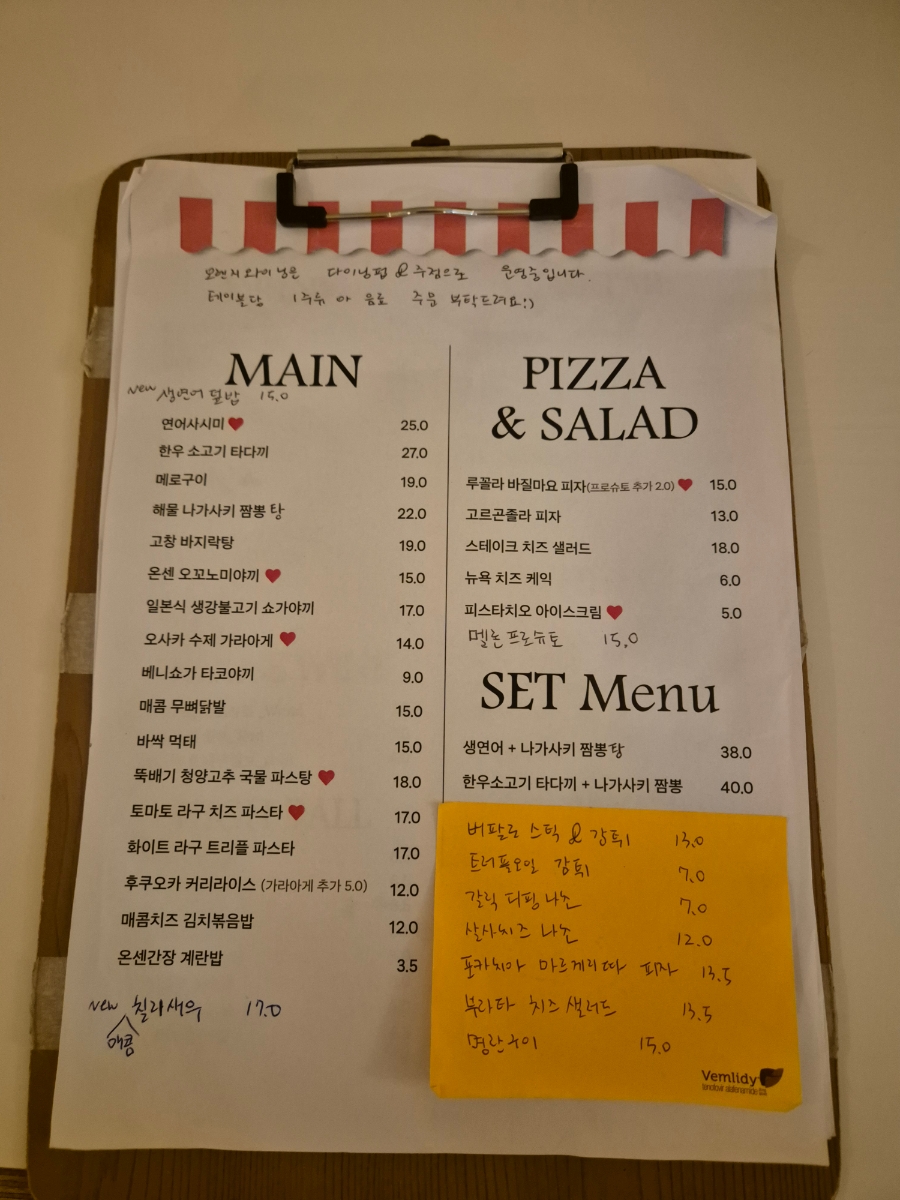 오렌지와이닝은 다이닝펍 & 주점으로 운영중입니다.
테이블당 1주류 or 음료 주문 부탁드려요:)
MAIN
New 생연어 덮밥 15.0
연어사시미 ♥ 25.0
한우 소고기 타다끼 27.0
메로구이 19.0
해물 나가사키 짬뽕 탕 22.0
고창 바지락탕 19.0
온센 오꼬노미야끼 ♥ 15.0
일본식 생강불고기 쇼가야끼 17.0
오사카 수제 가라아게 ♥ 14.0
베니쇼가 타코야끼 9.0
매콤 무뼈닭발 15.0
바싹 먹태 15.0
뚝배기 청양고추 국물 파스탕 ♥ 18.0
토마토 라구 치즈 파스타 ♥ 17.0
화이트 라구 트리플 파스타 17.0
후쿠오카 커리라이스 (가라아게 추가 5.0) 12.0
매콤치즈 김치볶음밥 12.0
온센간장 계란밥 3.5
New 칠리새우 17.0
매콤
PIZZA
& SALAD
루꼴라 바질마요 피자(프로슈토 추가 2.0) ♥ 15.0
고르곤졸라 피자 13.0
스테이크 치즈 샐러드 18.0
뉴욕 치즈 케익 6.0
피스타치오 아이스크림 ♥ 5.0
멜론프로슈토 15.0
SET Menu
생연어 + 나가사키 짬뽕탕 38.0
한우소고기 타다끼 + 나가사키 짬뽕 40.0
버팔로 스틱 & 감튀 13.0
트러플오일 감튀 7.0
갈릭 디핑 나쵸 7.0
살사치즈 나쵸 12.0
포카치아 마르게리따 피자 13.5
부라타 치즈 샐러드 13.5
명란구이 15.0
Vemlidy